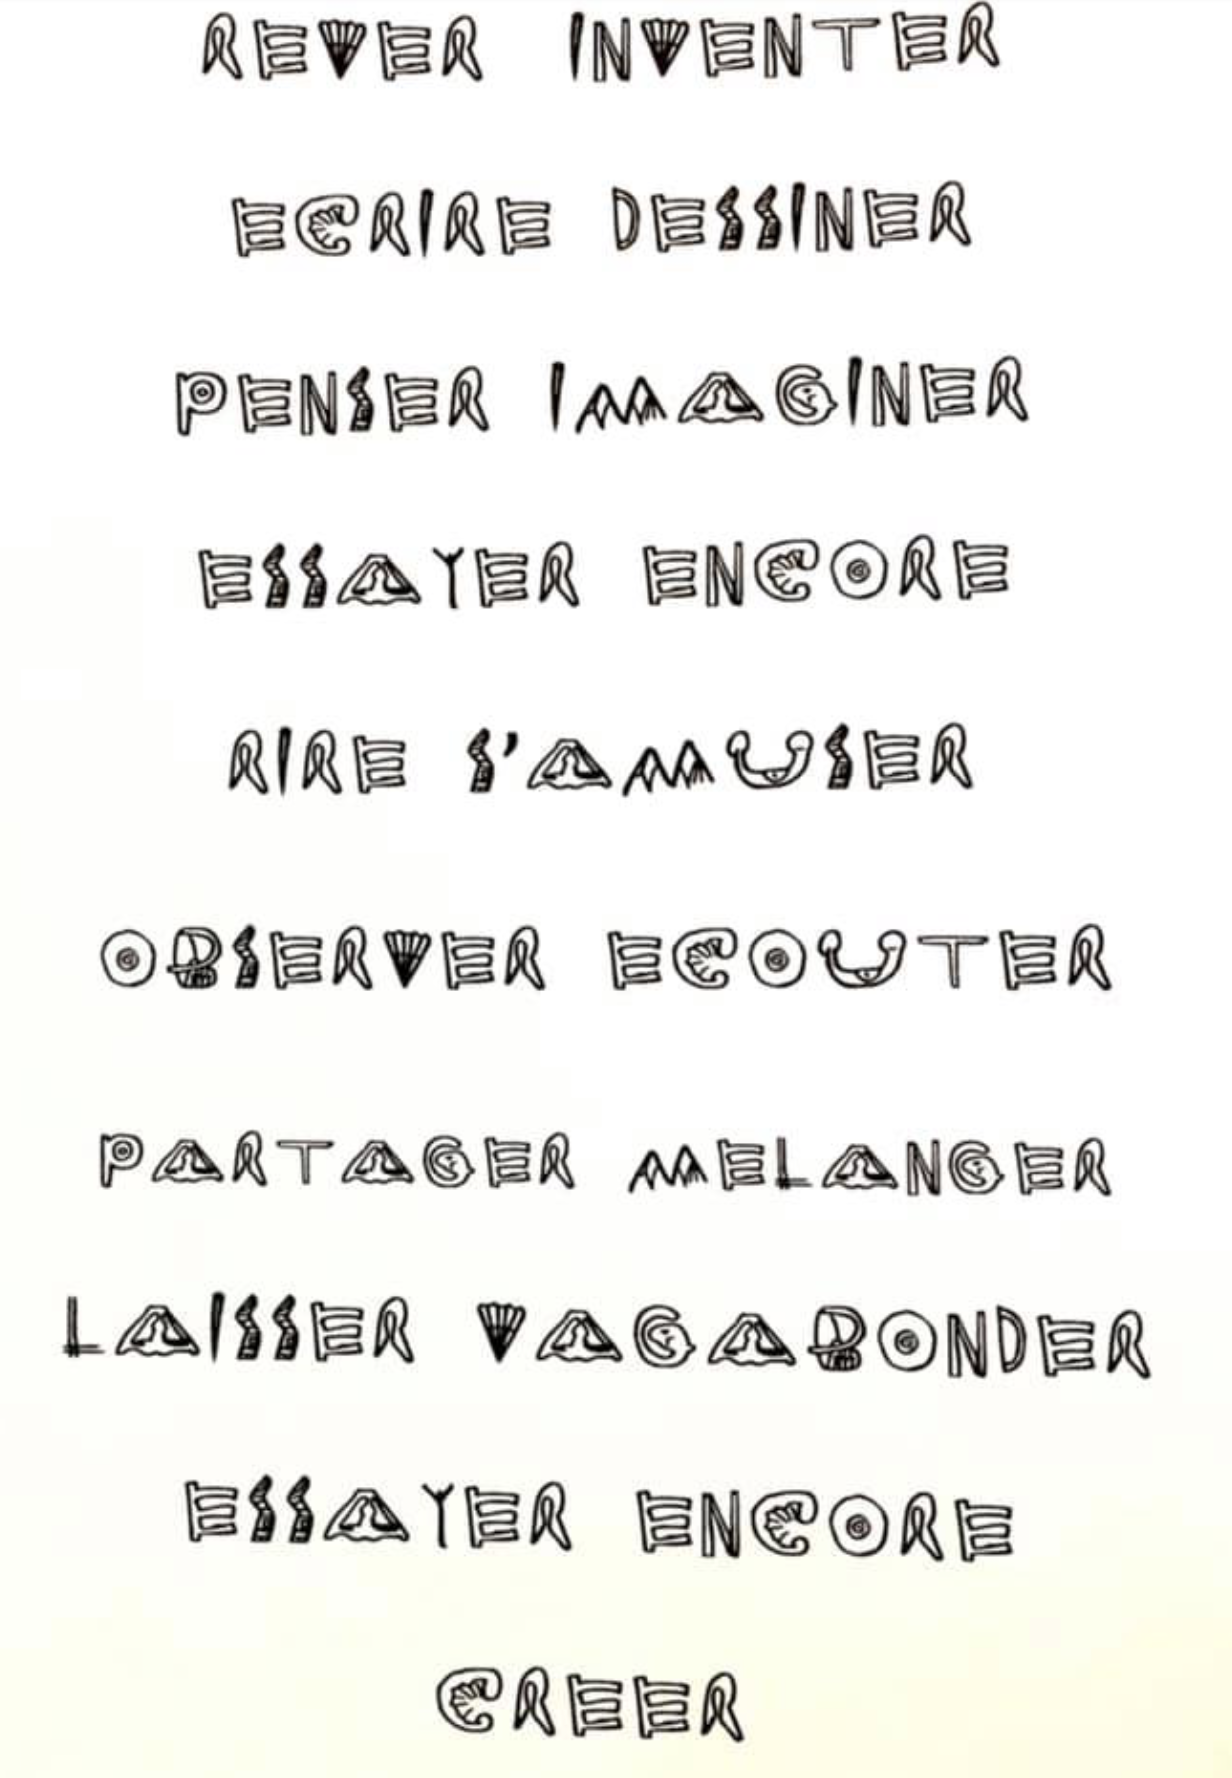 REVER INVENTER
ECRIRE DESSINER
PENSER IMAGINER
ESSAYER ENCORE
RIRE S'AMUSER
OBSERVER ECOUTER
PARTAGER MELANGER
LAISSER VAGABONDER
ESSAYER ENCORE
CREER